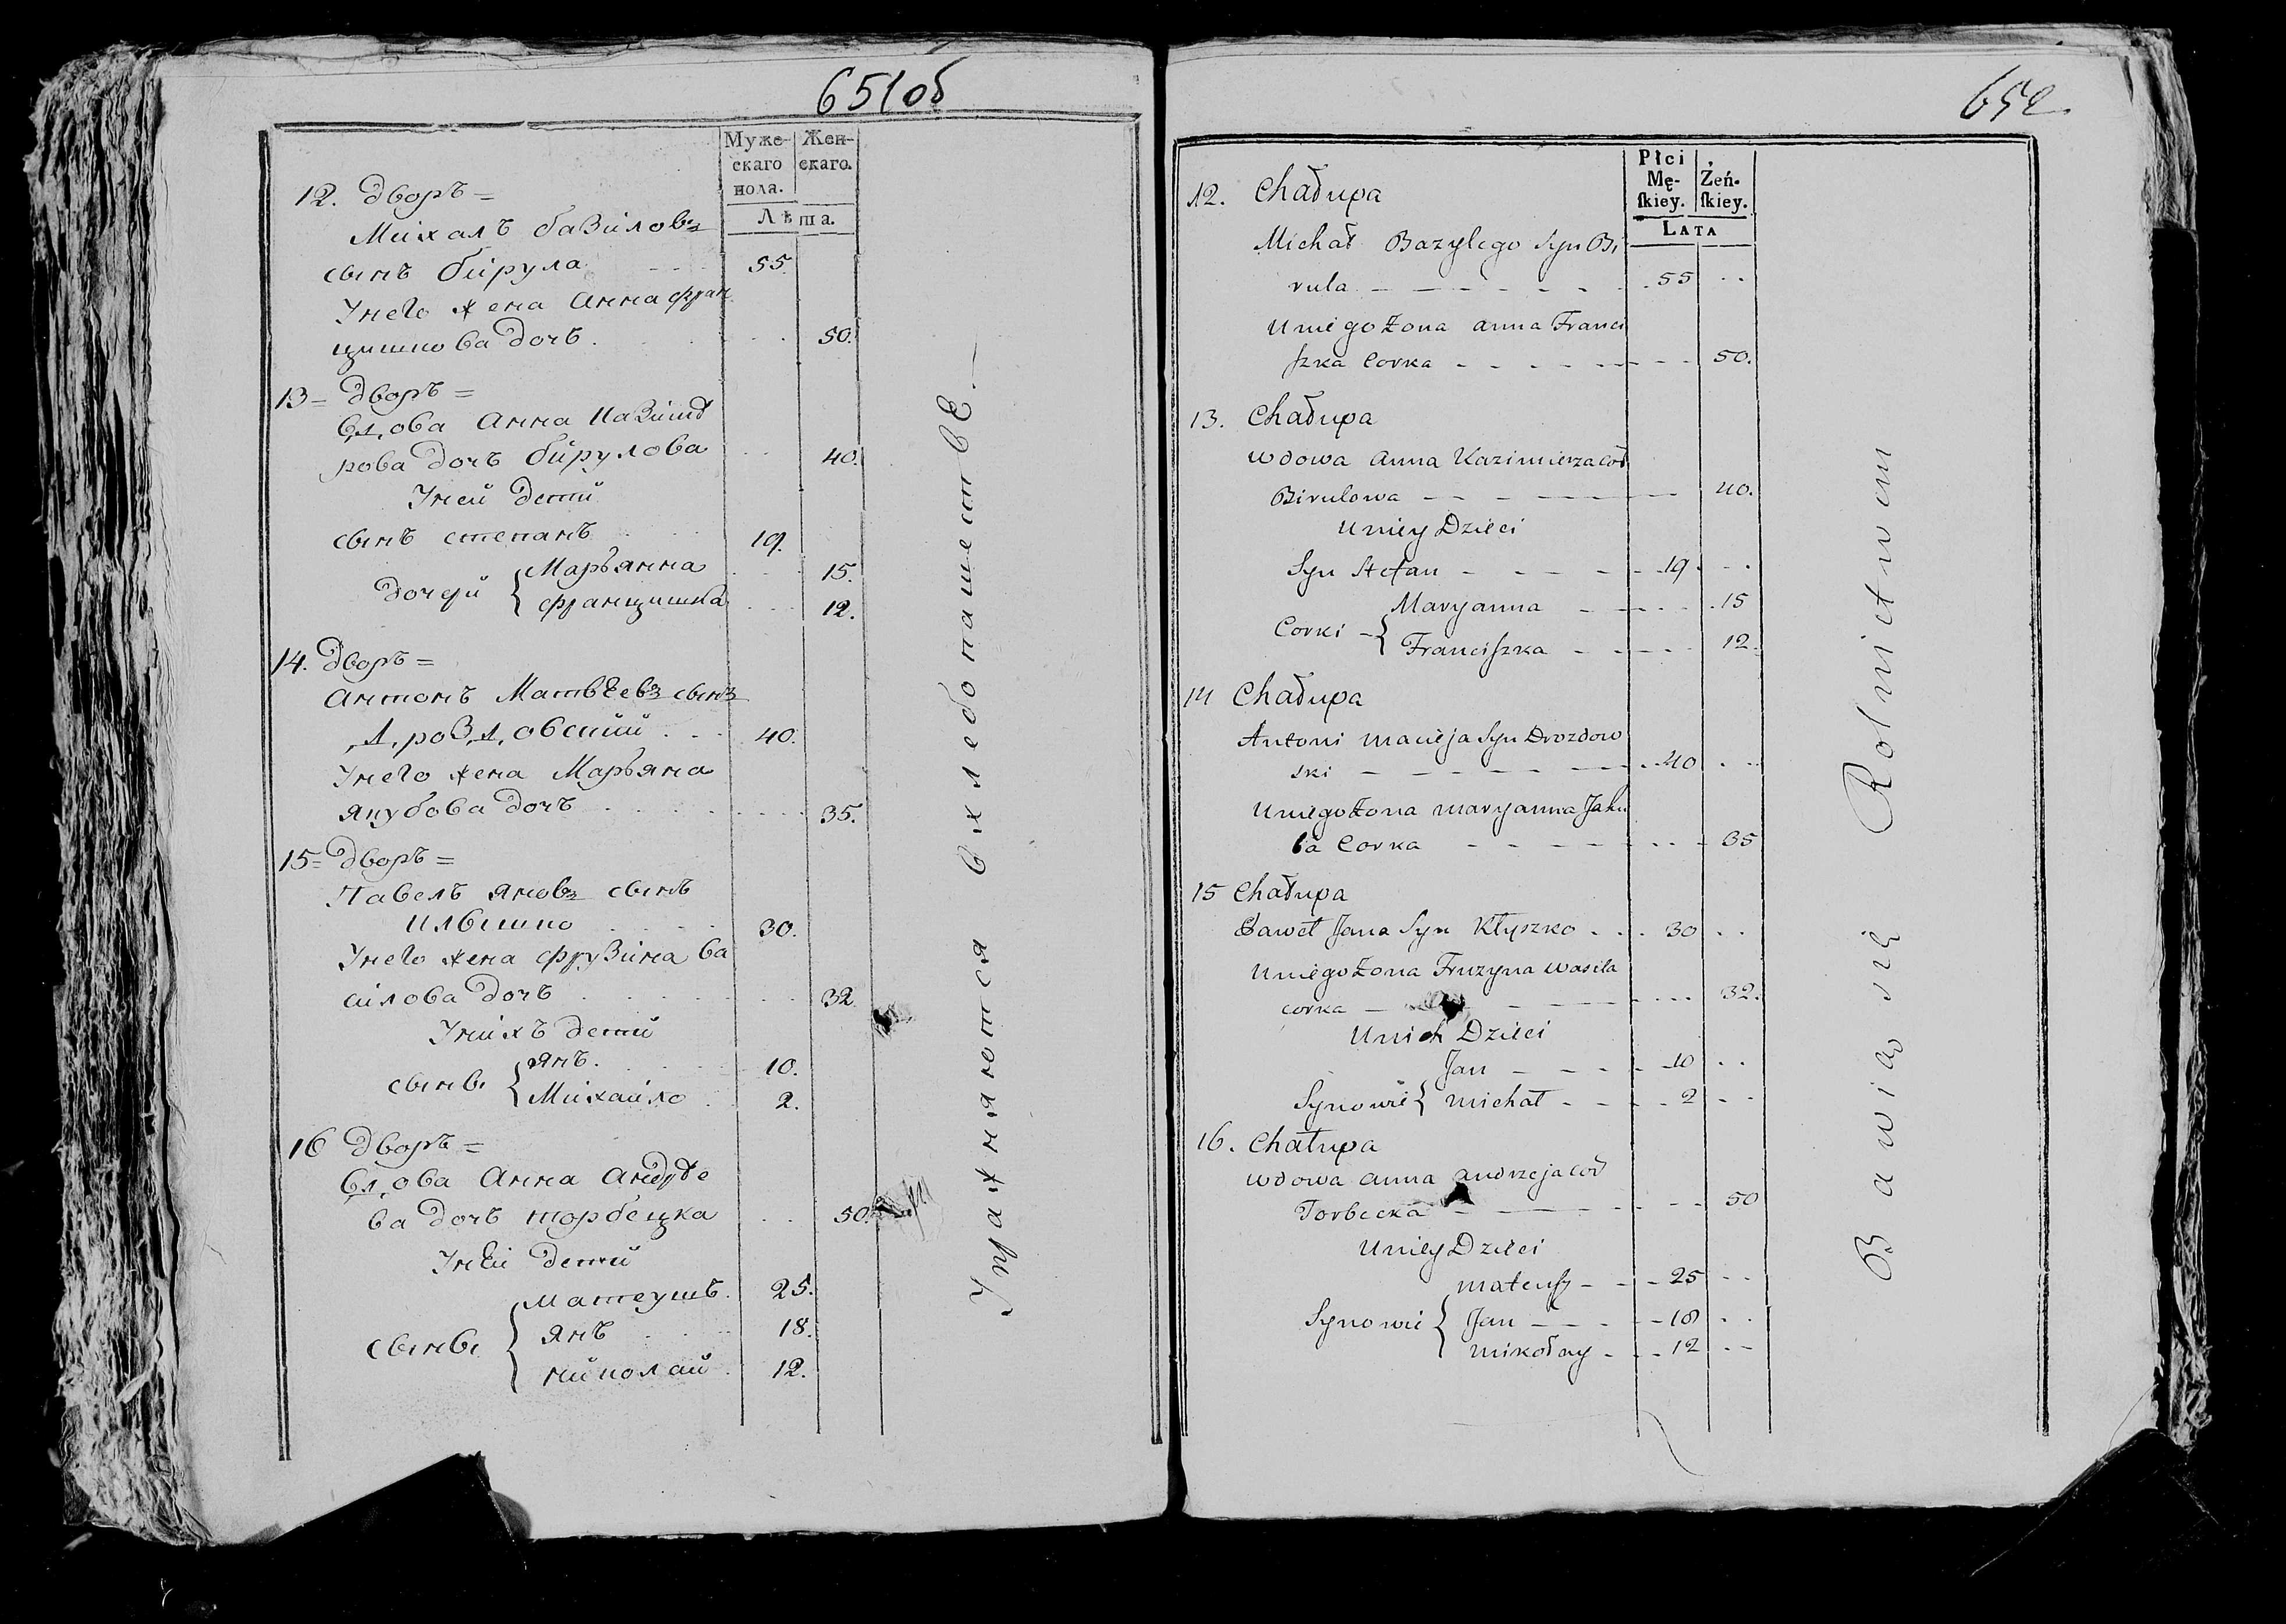 651об
Муже-
скаго
пола.
Жен-
скаго.
Лѣта.
12. Дворъ =
Михалъ базиловъ
сынъ бирула 55.
Унего жена Анна фран
цишкова дочъ. 50.
13 = Дворъ =
Вдова Анна Казими
рова дочъ бирулова 40.
Уней дети
сынъ степанъ 19.
дочери { Марьянна 15.
францишка 12.
14. Дворъ =
Антонъ Матвѣевъ сынъ
Дроздовский 40.
Унего жена Марьяна
якубова дочъ 35.
15 = Дворъ =
Павелъ яновъ сынъ
клышко 30.
Унего жена фрузина ва
силова дочъ 32
Унихъ дети
сыны { янъ. 10.
Михайло 2.
16 Дворъ =
Вдова Анна Андрѣе
ва дочъ торбецка 50.
Уней дети
сыны { Матеушъ. 25.
янъ 18.
николай 12.
Упражняются вхлебопашествѣ. —
652
Płci
Mę-
ſkiey.
Żeń-
ſkiey.
LATA
12. Chałupa
Michał Bazylego Syn Bi
rula 55
Uniego Żona Anna Franci
ſzka Corka 50.
13. Chałupa
Wdowa Anna Kazimierza Cor
Birulowa 40.
Uniey Dzieci
Syn Stefan 19
Corki { Maryanna 15
Franciſzka 12.
14 Chałupa
Antoni Macieja Syn Drozdow
ski 40
Uniego Żona Maryanna Jaku
ba Corka 35
15 Chałupa
Paweł Jana Syn Kłyszko 30
Uniego Żona Fruzyna Wasila
corka 32.
Unich Dzieci
Jan 10
Synowie { Michał 2
16. Chałupa
Wdowa Anna Andrzeja Cor
Torbecka 50
Uniey Dzieci
Mateuſz 25
Synowie { Jan 18
Mikołay 12
Bawią się Rolnictwem